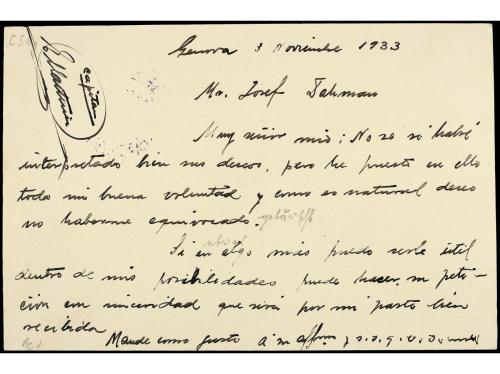 Genova 3 Noviembre 1933
Mr. Josef Tahman
Muy señor mio: No se si habré
interpretado bien sus deseos, pero he puesto en ello
toda mi buena voluntad y como es natural deseo
no haberme equivocado.
Si en algo más puedo serle útil
dentro de mis posibilidades puede hacer su peti-
ción con sinceridad que será por mi parte bien
recibida
Mande como guste a su affmo y s.s. q.
capitan